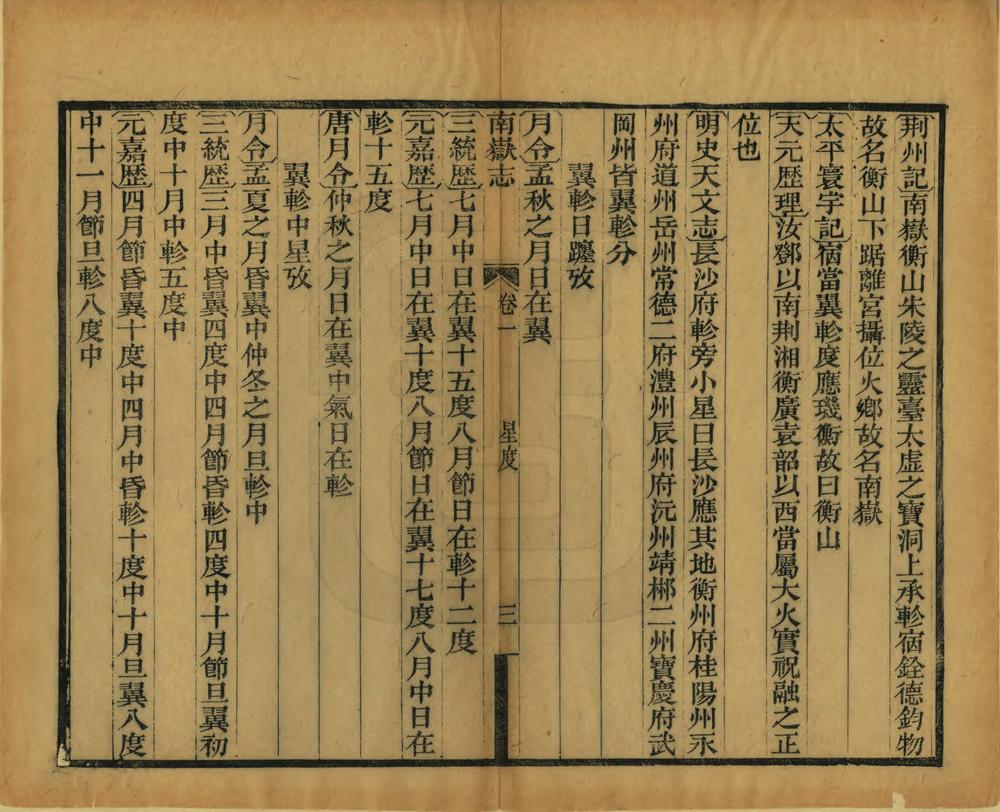 荆州記南嶽衡山朱陵之靈臺太虛之寶洞上承軫宿銓德鈞物
故名衡山下踞離宮攝位火鄉故名南嶽
太平寰宇記宿當翼軫度應璣衡故曰衡山
天元歷理汝鄧以南荆湘衡廣袁韶以西當屬大火實祝融之正
位也
明史天文志長沙府軫旁小星曰長沙應其地衡州府桂陽州永
州府道州岳州常德二府澧州辰州府沅州靖郴二州寶慶府武
岡州皆翼軫分
翼軫日躔攷
月令孟秋之月日在翼
南嶽志 卷一 星度 三
三統歷七月中日在翼十五度八月節日在軫十二度
元嘉歷七月中日在翼十度八月節日在翼十七度八月中日在
軫十五度
唐月令仲秋之月日在翼中氣日在軫
翼軫中星攷
月令孟夏之月昏翼中仲冬之月旦軫中
三統歷三月中昏翼四度中四月節昏軫四度中十月節旦翼初
度中十月中軫五度中
元嘉歷四月節昏翼十度中四月中昏軫十度中十月旦翼八度
中十一月節旦軫八度中